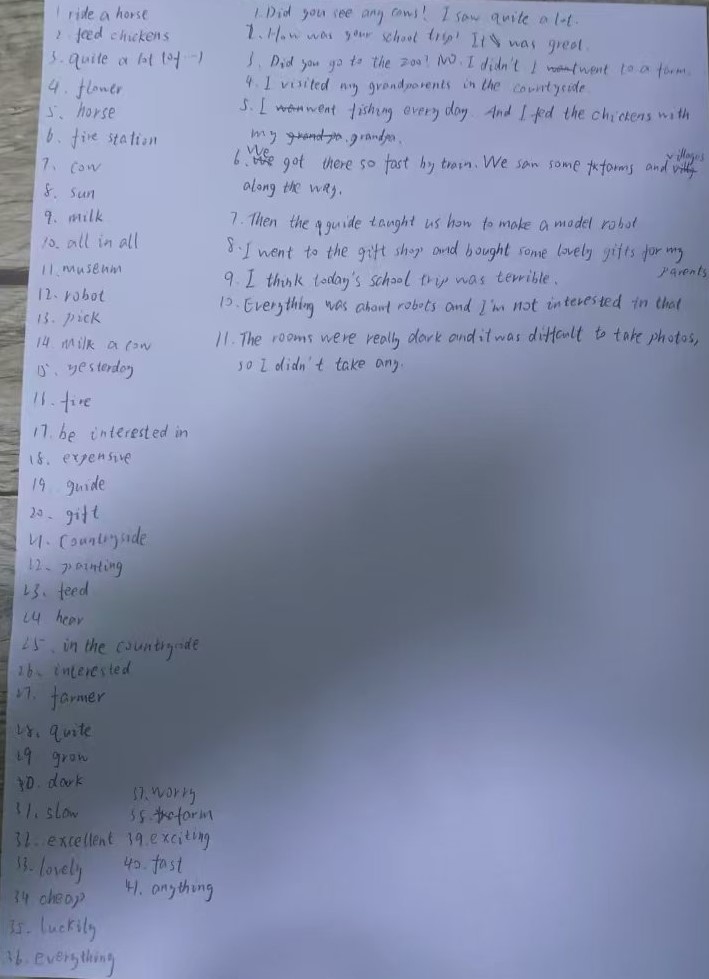 1 ride a horse
2. feed chickens
3. quite a lot (of...)
4. flower
5. horse
6. fire station
7. cow
8. sun
9. milk
10. all in all
11. museum
12. robot
13. pick
14. milk a cow
15. yesterday
16. fire
17. be interested in
18. expensive
19. guide
20. gift
21. countryside
22. painting
23. feed
24 hear
25. in the countryside
26. interested
27. farmer
28. quite
29. grow
30. dark
31. slow
32. excellent
33. lovely
34. cheap
35. luckily
36. everything
37. worry
38. farm
39. exciting
40. fast
41. anything
1. Did you see any cows? I saw quite a lot.
2. How was your school trip? It was great.
3. Did you go to the zoo? NO. I didn't I went to a farm.
4. I visited my grandparents in the countryside.
5. I went fishing every day. And I fed the chickens with
my grandpa.
6. We got there so fast by train. We saw some farms and villages
along the way.
7. Then the guide taught us how to make a model robot
8. I went to the gift shop and bought some lovely gifts for my
parents
9. I think today's school trip was terrible.
10. Everything was about robots and I'm not interested in that
11. The rooms were really dark and it was difficult to take photos,
so I didn't take any.